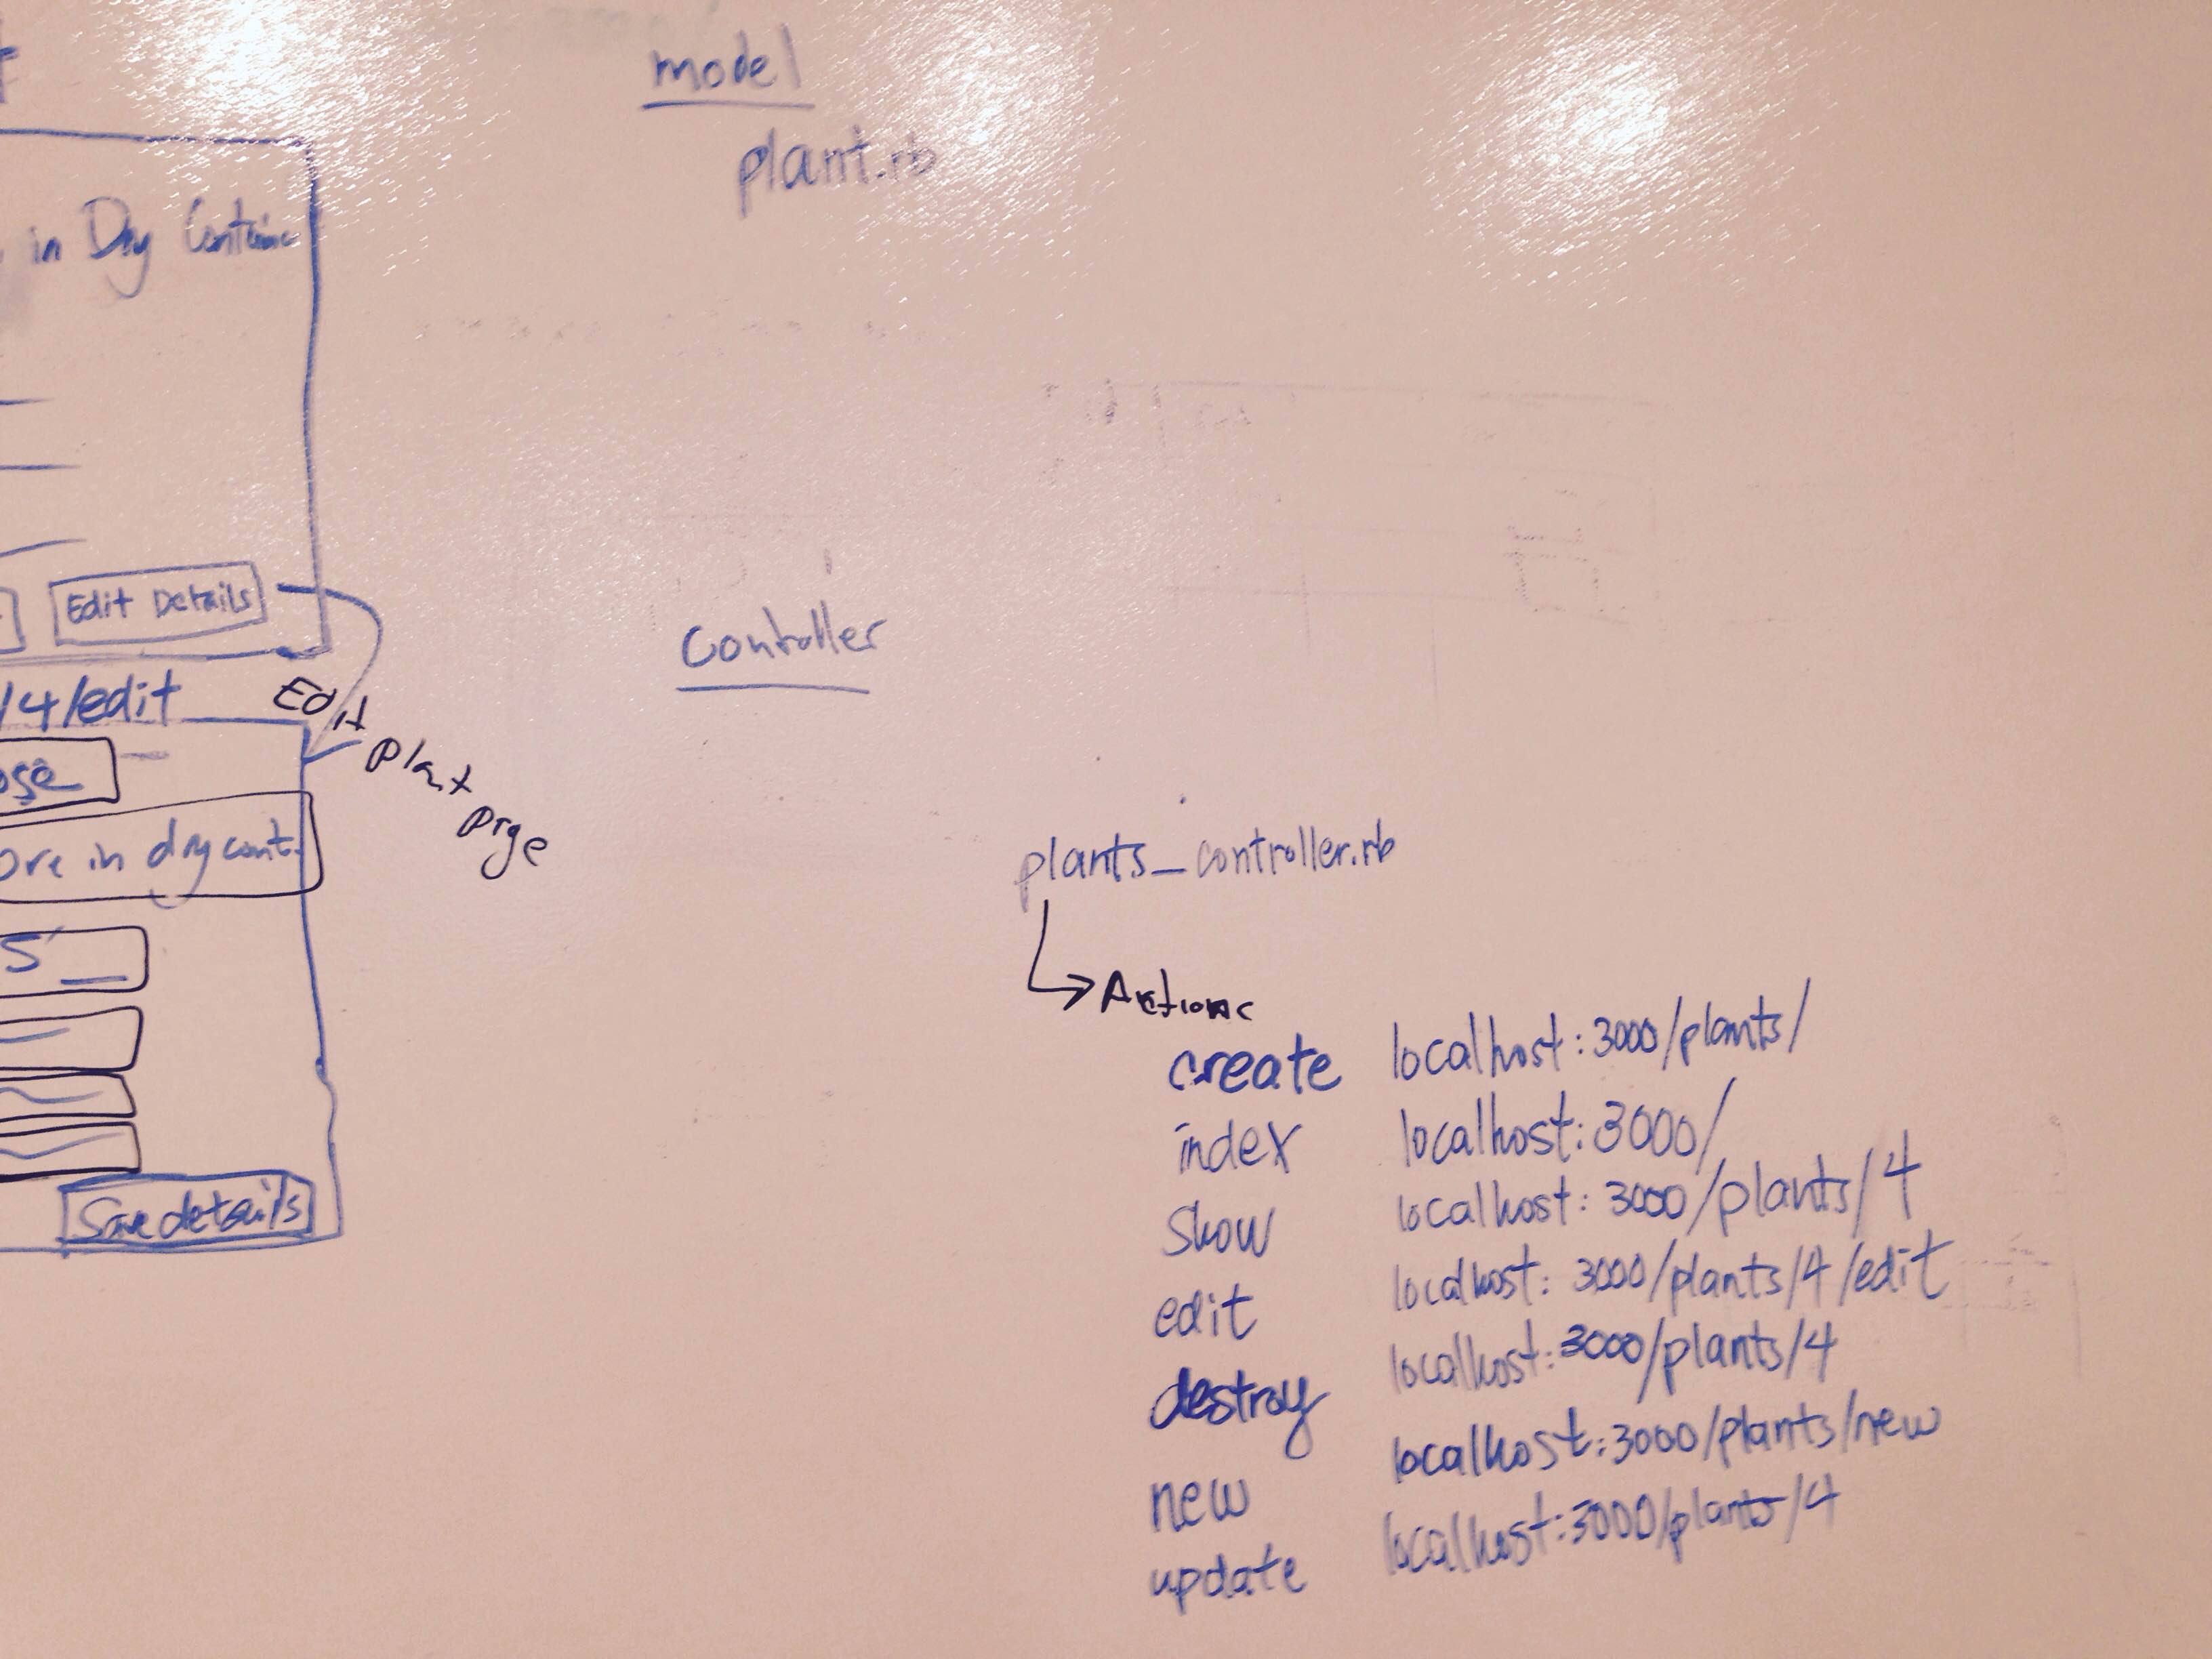 model
plant.rb
in Dry
Edit Details
/4/edit
Edit
plant
page
ore in dry cont.
5
Save details
Controller
plants_controller.rb
Actions
create localhost:3000/plants/
index localhost:3000/
show localhost:3000/plants/4
edit localhost:3000/plants/4/edit
destroy localhost:3000/plants/4
new localhost:3000/plants/new
update localhost:3000/plants/4